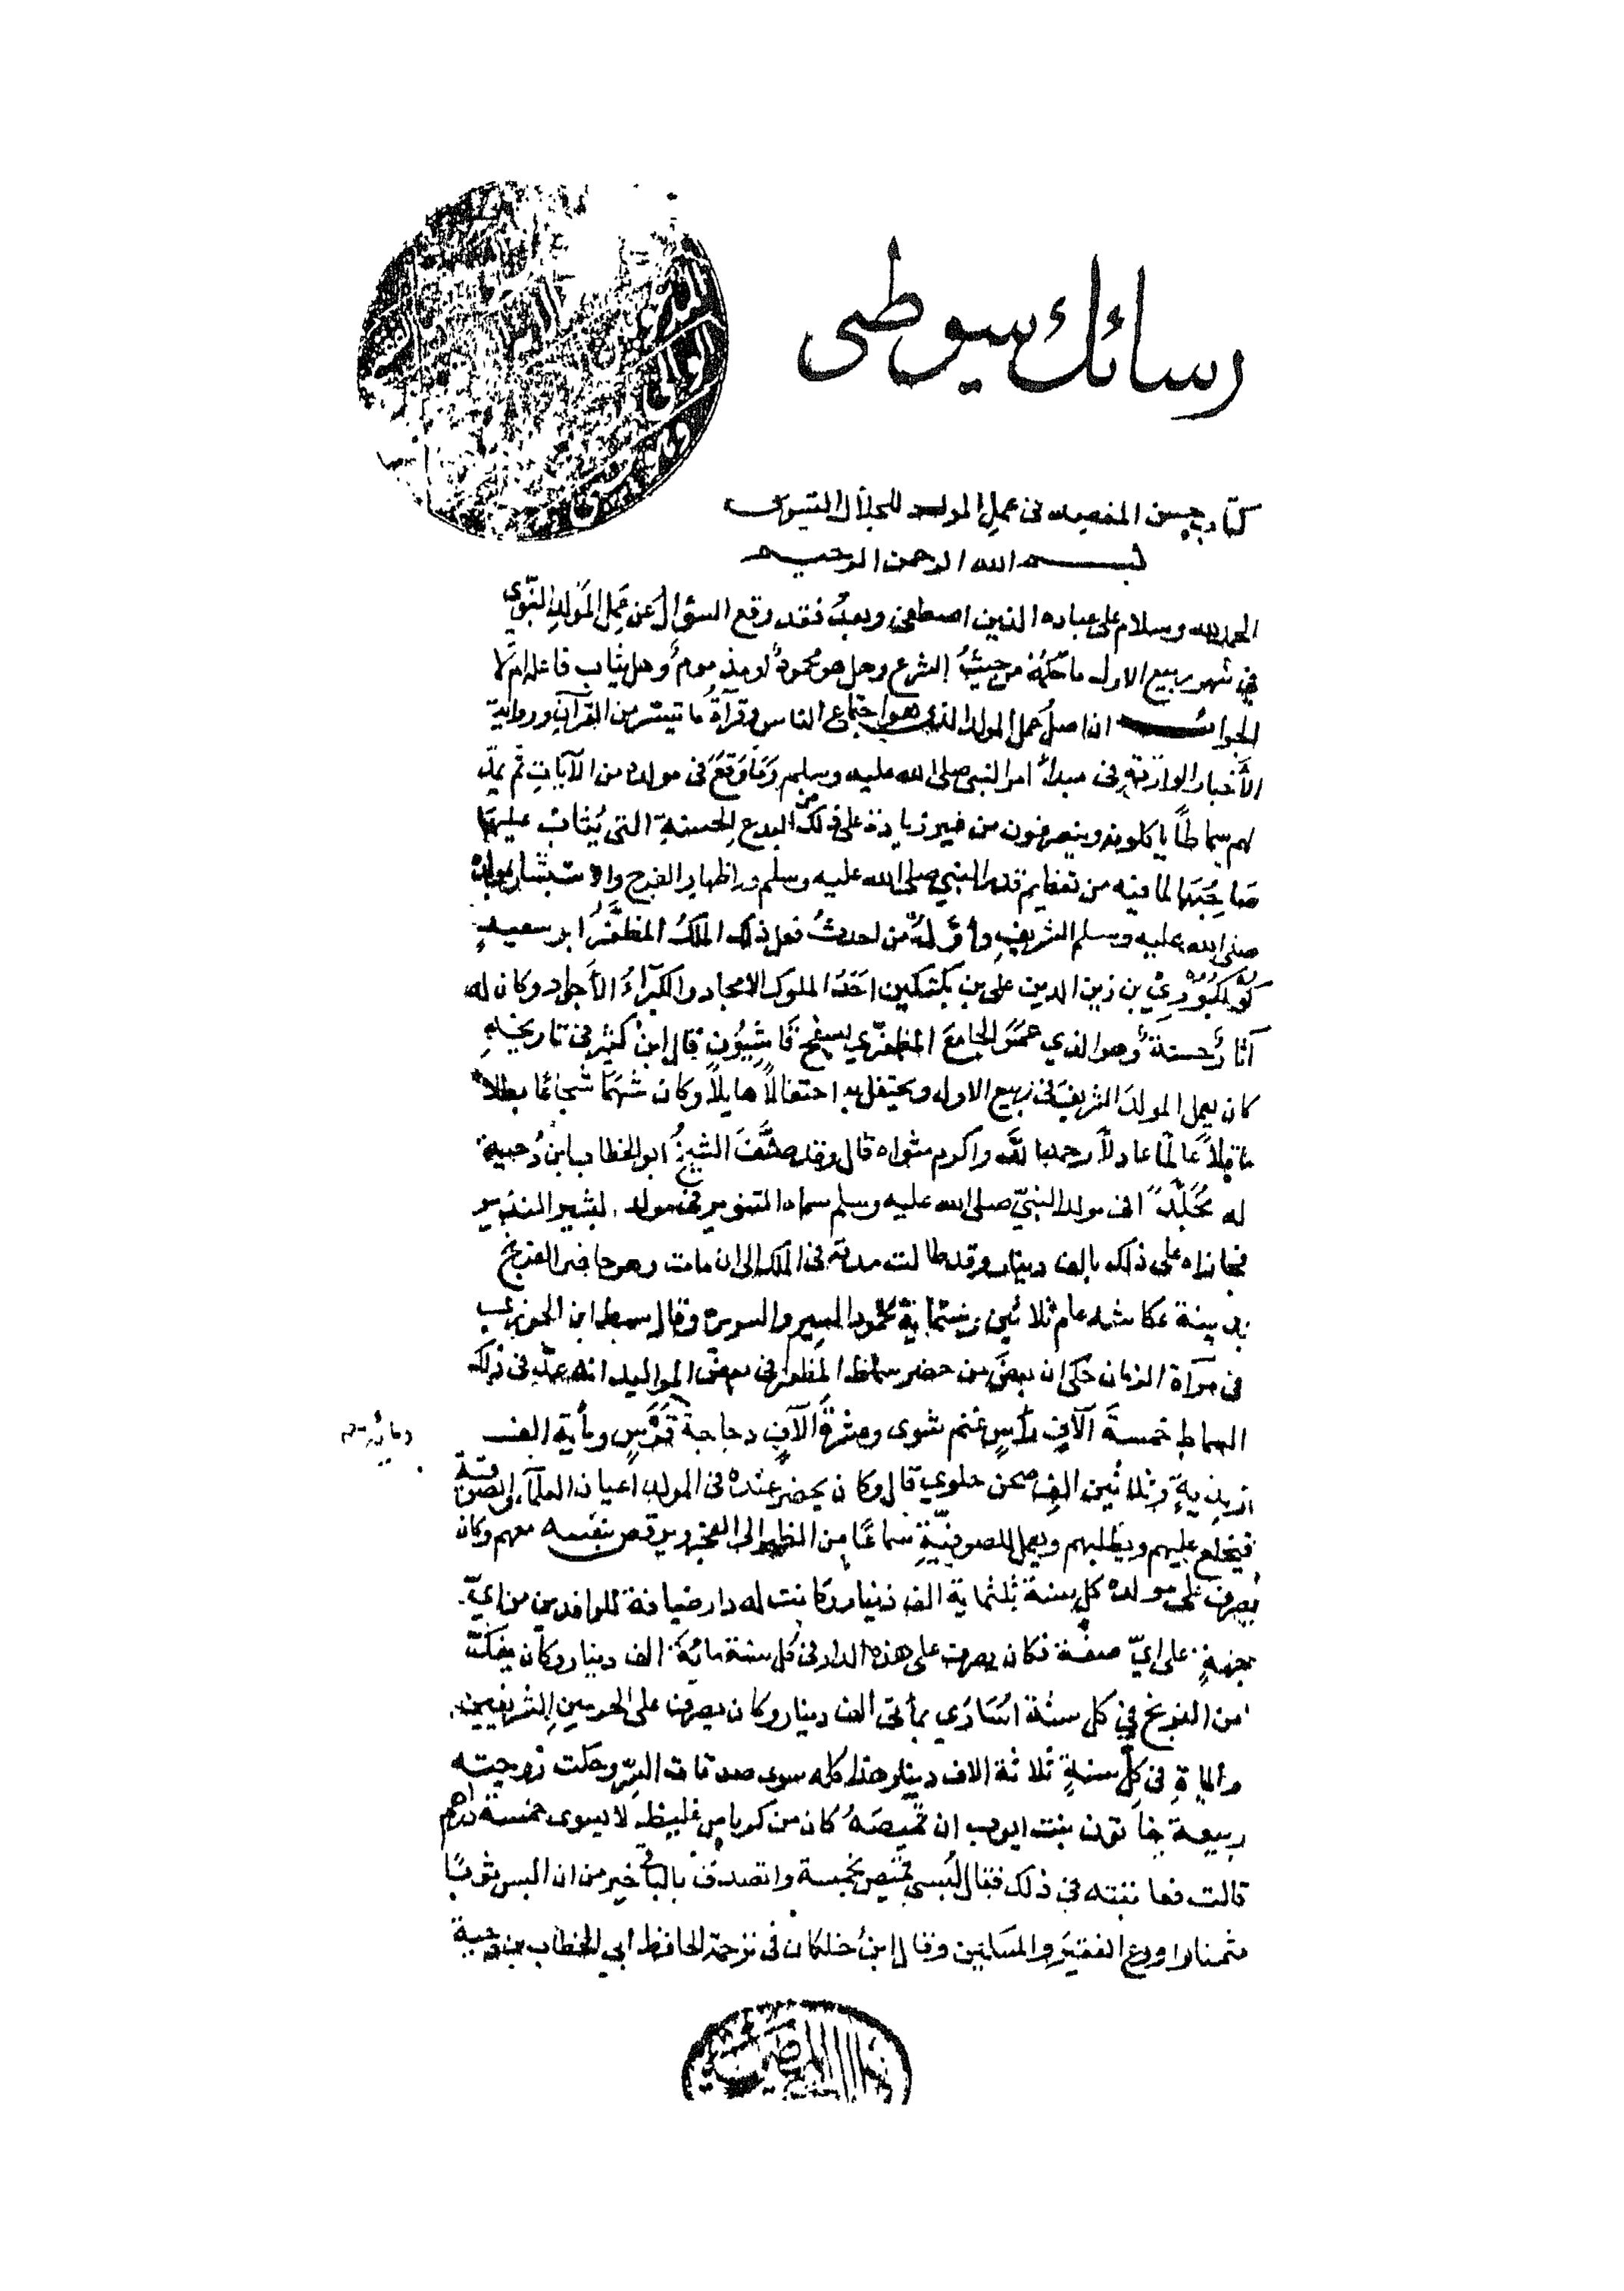 رسائل سيوطى
كتاب حسن المقصد فى عمل المولد للجلال السيوطى
بسم الله الرحمن الرحيم
الحمد لله وسلام على عباده الذين اصطفى وبعد فقد وقع السؤال عن عمل المولد النبوي
في شهر ربيع الاول ما حكمه من حيث الشرع وهل هو محمود او مذموم وهل يثاب فاعله ام لا
الجواب ان اصل عمل المولد الذى هو اجتماع الناس وقرآة ما تيسر من القرآن ورواية
الأخبار الواردة فى مبدأ امر النبى صلى الله عليه وسلم وما وقع فى مولده من الآيات ثم يمد
لهم سماطا ياكلونه وينصرفون من غير زيادة على ذلك من البدع الحسنة التى يثاب عليها
صاحبها لما فيه من تعظيم قدر النبي صلى الله عليه وسلم واظهار الفرح والاستبشار بمولده
صلى الله عليه وسلم الشريف وأول من احدث فعل ذلك الملك المظفر ابو سعيد
كوكبوري بن زين الدين على بن بكتكين احد الملوك الامجاد والكبرآء الأجواد وكان له
آثار حسنة وهو الذي عمر الجامع المظفري بسفح قاسيون قال ابن كثير فى تاريخه
كان يعمل المولد الشريف فى ربيع الاول ويحتفل به احتفالا هايلا وكان شهما شجاعا بطلا
عاقلا عالما عادلا رحمه الله واكرم مثواه قال وقد صنف الشيخ ابو الخطاب ابن دحية
له مجلدا فى مولد النبي صلى الله عليه وسلم سماه التنوير فى مولد البشير النذير
فجازاه على ذلك بالف دينار وقد طالت مدته فى الملك الى ان مات وهو محاصر الفرنج
بمدينة عكا سنة عام ثلاثين وستماية محمود السيرة والسريرة وقال سبط ابن الجوزى
فى مرآة الزمان حكى ان بعض من حضر سماط المظفر فى بعض المواليد انه عد فى ذلك
السماط خمسة آلاف رأس غنم شوى وعشرة آلاف دجاجة ومأية الف
زبدية وثلاثين الف صحن حلوى قال وكان يحضر عنده فى المولد اعيان العلمآء والصوفية
فيخلع عليهم ويطلبهم ويعمل للصوفية سماعا من الظهر الى الفجر ويرقص بنفسه معهم وكان
يصرف على مولده كل سنة ثلثماية الف دينار وكانت له دار ضيافة للوافدين من اي
جهة على اي صفة فكان يصرف على هذه الدار فى كل سنة مائة الف دينار وكان يفك
من الفرنج في كل سنة اسارى بمأتى ألف دينار وكان يصرف على الحرمين الشريفين
والماة فى كل سنة ثلاثة الاف دينار هذا كله سوى صدقات السر وحكت زوجته
ربيعة خاتون بنت ايوب ان قميصه كان من كرباس غليظ لا يسوى خمسة دراهم
قالت فعاتبته فى ذلك فقال لبسى قميص بخمسة واتصدق بالباقي خير من ان البس ثوبا
مثمنا وادع الفقير والمسكين وقال ابن خلكان فى ترجمة الحافظ ابي الخطاب بن دحية